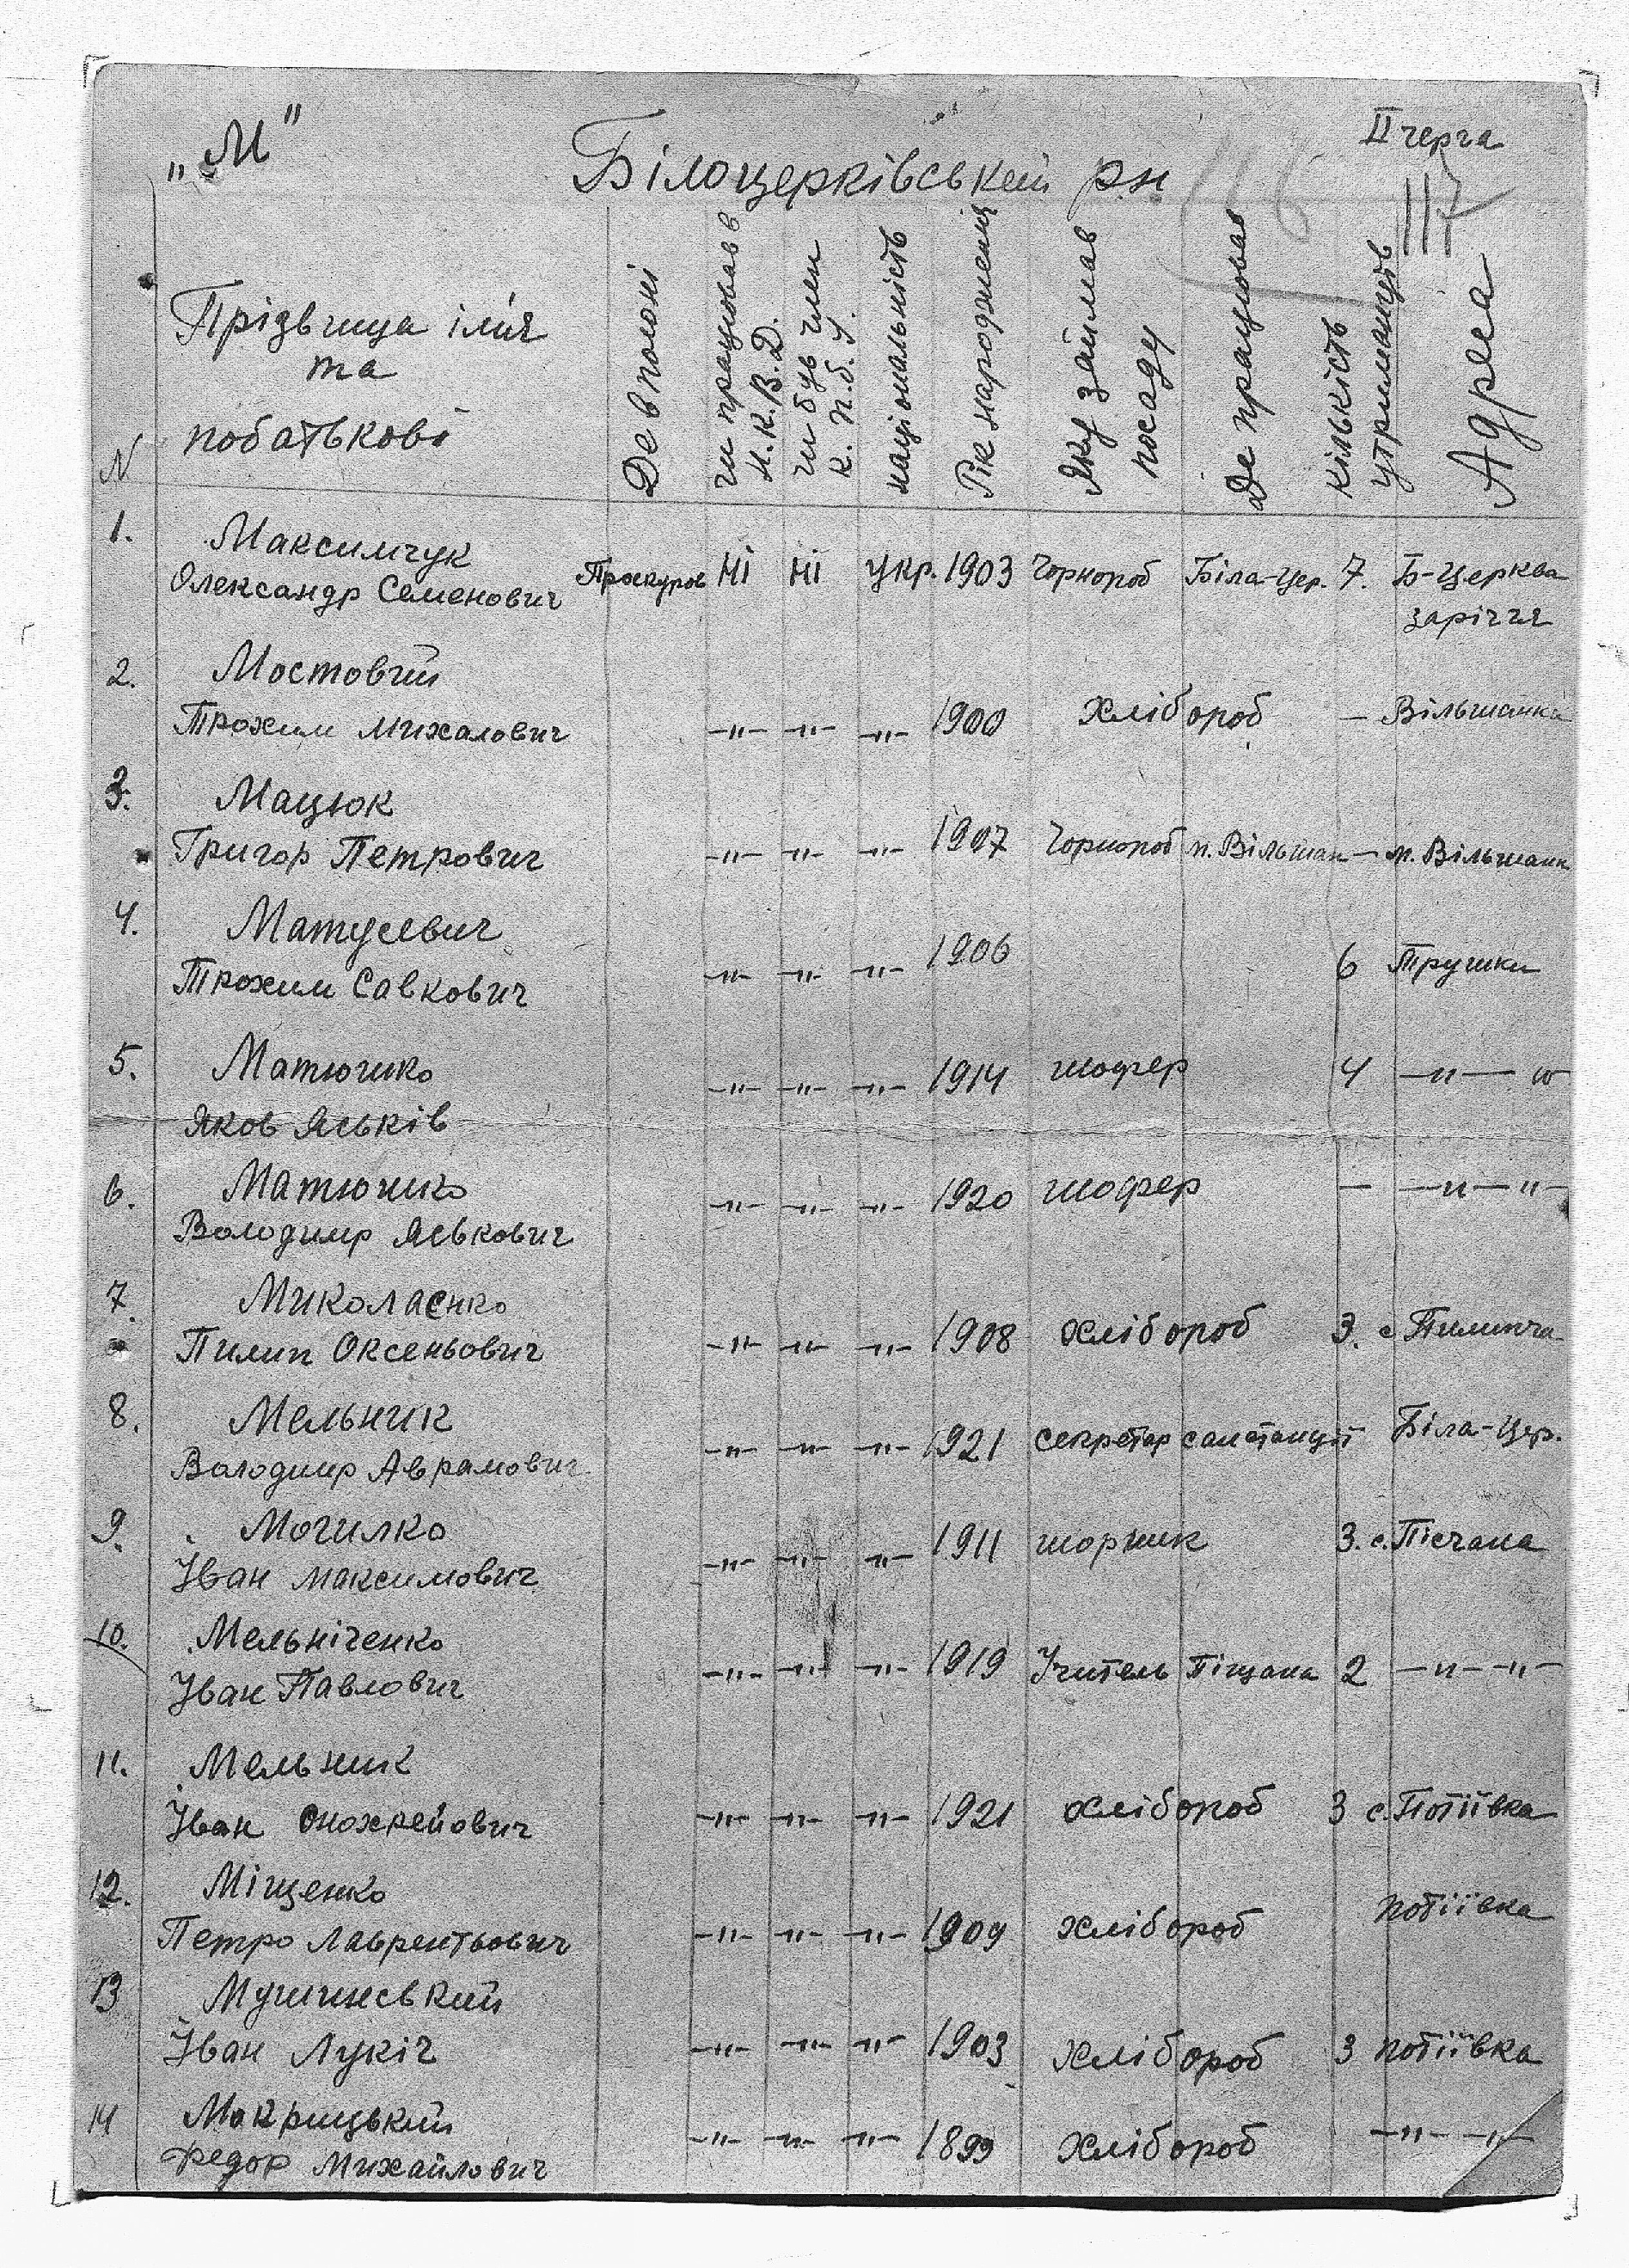 „М"
ІІ черга
Білоцерківський р-н
117
N
Прізвища ім'я
та
побатькові
Де в полоні
чи працював в
Н.К.В.Д.
чи був член
К.П.б.У.
національність
Рік народження
Яку займав
посаду
Де працював
кількість
утриманців
Адреса
1. Максимчук
Олександр Семенович Проскуров Ні Ні укр. 1903 Чорнороб Біла-Цер. 7. Б-Церква
заріччя
2. Мостовий
Трохим Михалович —"— —"— —"— 1900 Хлібороб — Вільшанка
3. Мацюк
Григор Петрович —"— —"— —"— 1907 Чорнороб м. Вільшан — м. Вільшанк
4. Матусевич
Трохим Савкович —"— —"— —"— 1906 6 Трушки
5. Матюшко —"— —"— —"— 1914 шофер 4 —"— "
Яков Яськів
6. Матюшко —"— —"— —"— 1920 шофер — —"— "—
Володимр Яськович
7. Миколаєнко
Пилип Оксеньович —"— —"— —"— 1908 хлібороб 3. с Пилипча
8. Мельник
Володимр Аврамович —"— —"— —"— 1921 секретар санстанції Біла-Цер.
9. Могилко
Іван Максимович —"— —"— —"— 1911 шорник 3. с. Пісчана
10. Мельніченко
Іван Павлович —"— —"— —"— 1919 Учитель Піщана 2 —"— —"—
11. Мельник
Іван —"— —"— —"— 1921 хлібороб 3 с. Потіївка
12. Міщенко
Петро Лаврентьович —"— —"— —"— 1909 хлібороб потіївка
13 Мушинський
Іван Лукіч —"— —"— —"— 1903 хлібороб 3 потіївка
14 Мокрицький
Федор Михайлович —"— —"— —"— 1899 хлібороб —"— —"—